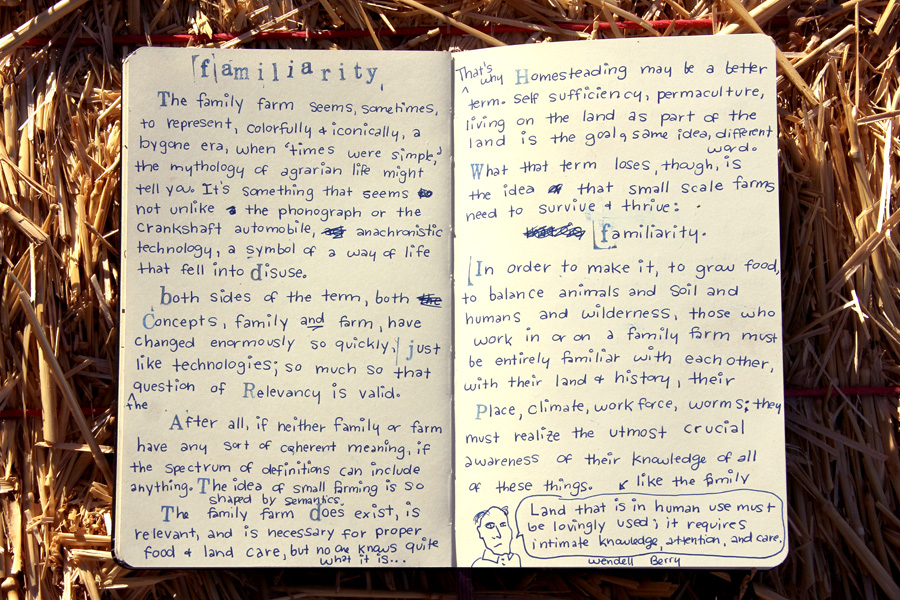 [f]amiliarity,
The family farm seems, sometimes,
to represent, colorfully & iconically, a
bygone era, when "times were simple,"
the mythology of agrarian life might
tell you. It's something that seems
not unlike the phonograph or the
crankshaft automobile, anachronistic
technology, a symbol of a way of life
that fell into disuse.
both sides of the term, both
Concepts, family and farm, have
changed enormously so quickly, just
like technologies; so much so that
the question of Relevancy is valid.
After all, if neither family or farm
have any sort of coherent meaning, if
the spectrum of definitions can include
anything. The idea of small farming is so
shaped by semantics.
The family farm does exist, is
relevant, and is necessary for proper
food & land care, but no one knows quite
what it is...
That's why Homesteading may be a better
term. Self sufficiency, permaculture,
living on the land as part of the
land is the goal, same idea, different
word.
What that term loses, though, is
the idea that small scale farms
need to survive & thrive:
[familiarity.
[In order to make it, to grow food,
to balance animals and soil and
humans and wilderness, those who
work in or on a family farm must
be entirely familiar with each other,
with their land & history, their
Place, climate, work force, worms; they
must realize the utmost crucial
awareness of their knowledge of all
of these things. ↙ like the family
Land that is in human use must
be lovingly used; it requires
intimate knowledge, attention, and care.
Wendell Berry